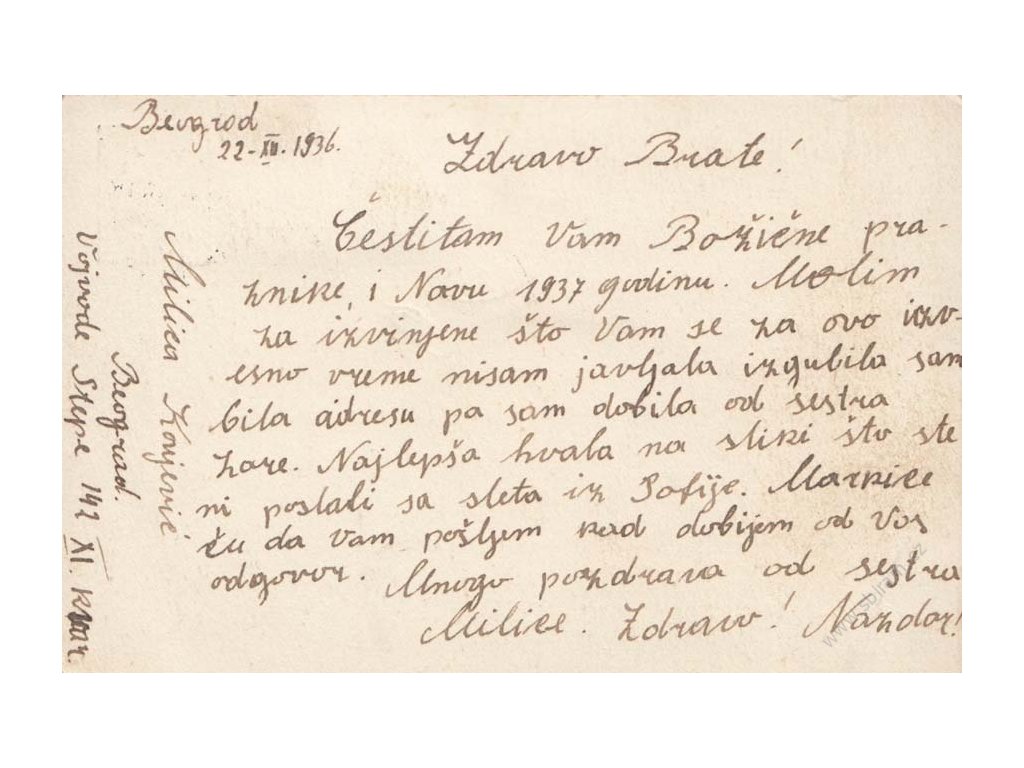 Beograd
22-XII. 1936.
Zdravo Brate!
Čestitam Vam Božićne pra-
znike, i Novu 1937 godinu. Molim
za izvinjene što Vam se za ovo izv-
esno vreme nisam javljala izgubila sam
bila adresu pa sam dobila od sestra
Zore. Najlepša hvala na sliki što ste
ni poslali sa sleta iz Sofije. Markice
ću da Vam pošljem kad dobijem od Vas
odgovor. Mnogo pozdrava od sestra
Milice. Zdravo! Nazdar!
Milica Konjević
Beograd.
Vojvode Stepe 142 XI. kvar.